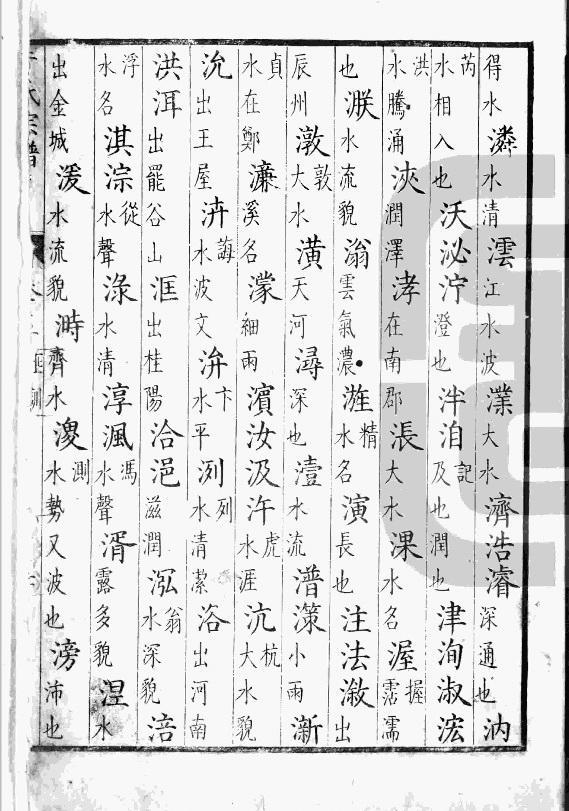 得水潾水清澐江水波澲大水濟浩濬深通也汭
芮水相入也沃泌泞澄也泮洎記及也潤也津洵淑浤
洪水騰涌浹潤澤涍在南郡涱大水淉水名渥握霑濡
也濙水流貌滃雲氣濃漇精水名演長也注法漵出
辰州潡敦大水潢天河潯深也澅水流潽䇲小雨澵
貞水在鄭濂溪名濛細雨濱汝汲汻虎水涯沆杭大水貌
沇出王屋浒誨水波文汴卞水平洌列水清潔浴出河南
洪洱出罷谷山洭出桂陽洽浥滋潤泓翁水深貌涪
浮水名淇淙從水聲淥水清淳渢馮水聲湑露多貌湼水
出金城湲水流貌溡齊水溭測水勢又波也滂沛也
氏宗譜